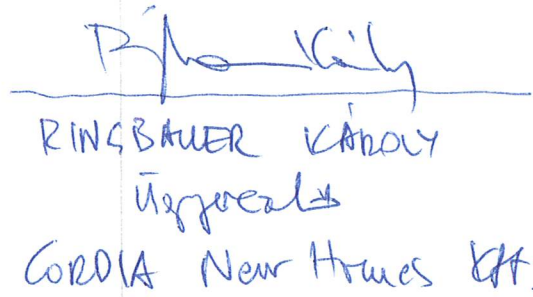 RINGBAUER KÁROLY
Ügyvezető
CORDIA New Homes Kft.